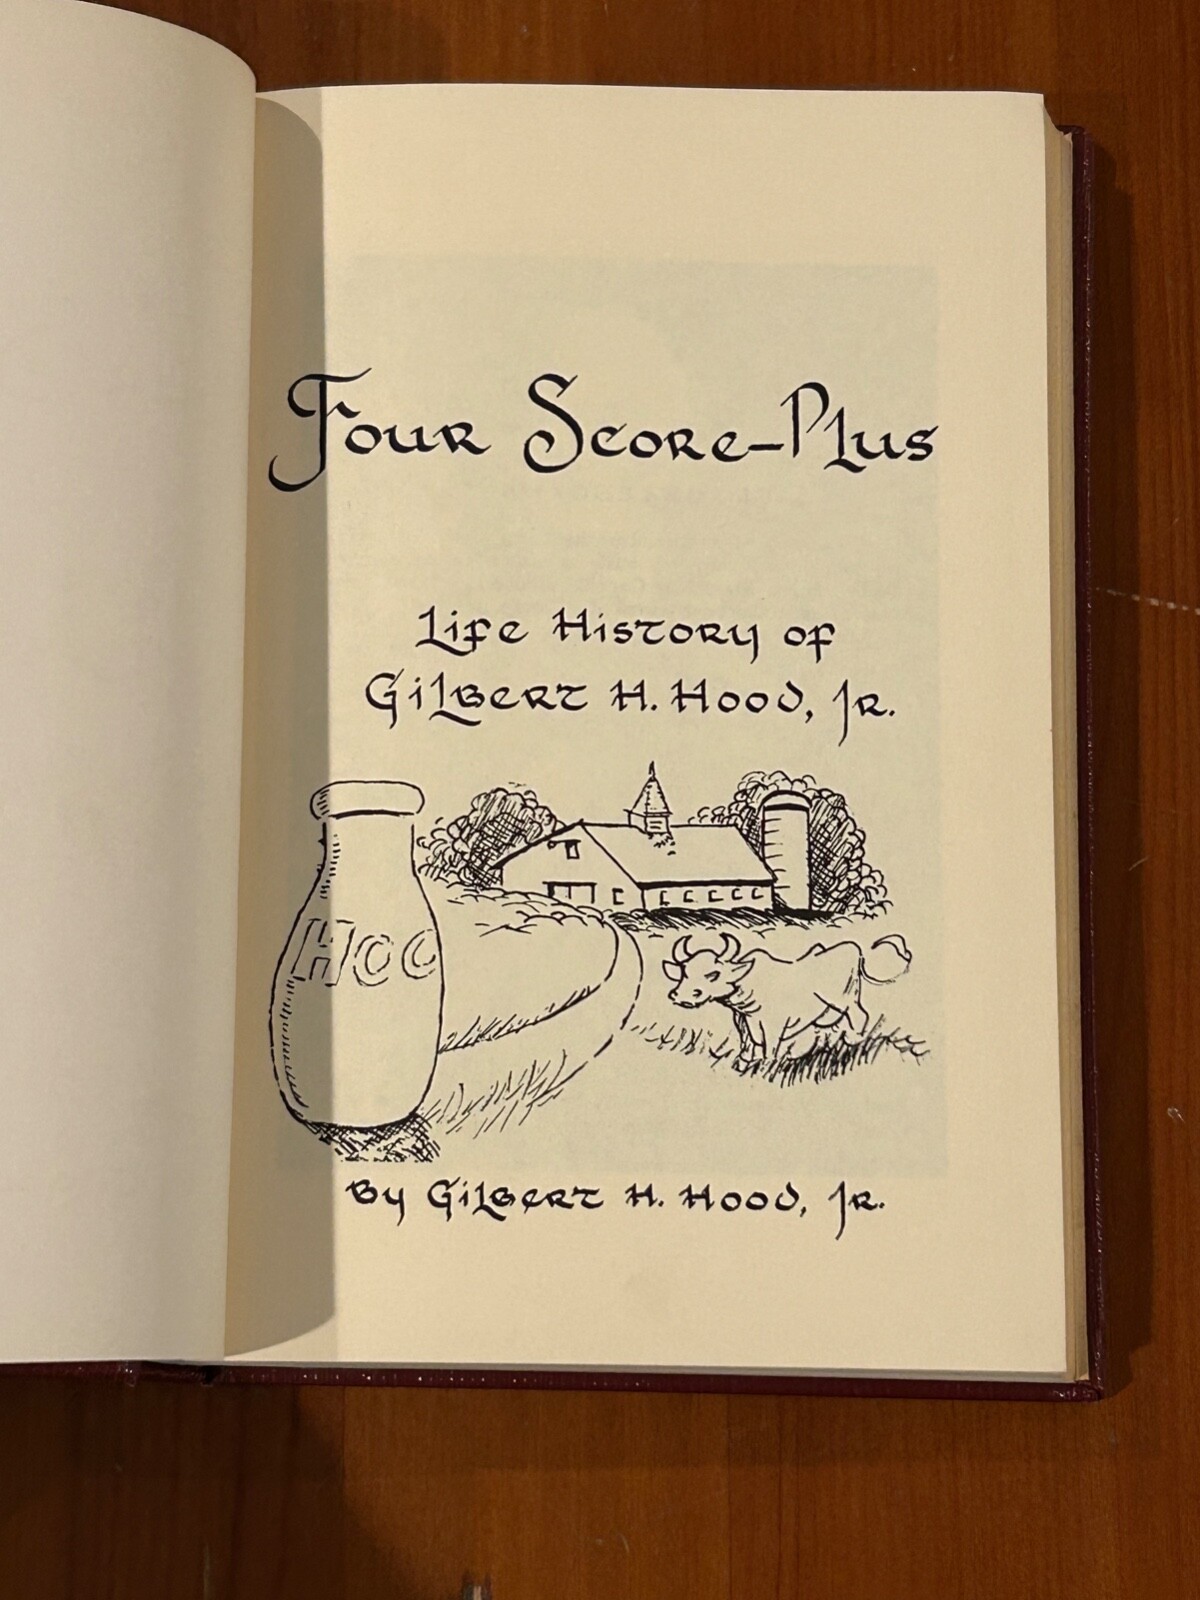 Four Score-Plus
Life History of
Gilbert H. Hood, Jr.
Hoo
By Gilbert H. Hood, Jr.